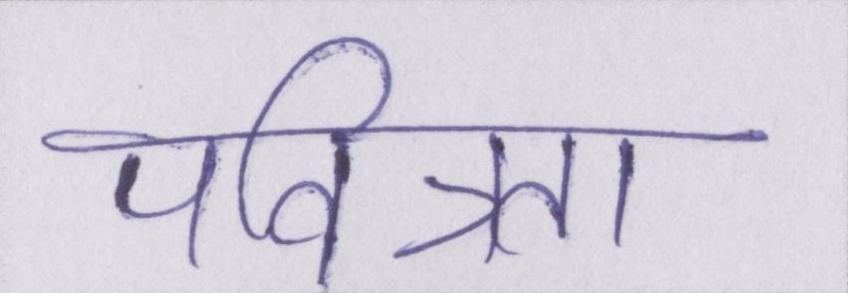 पवित्रता